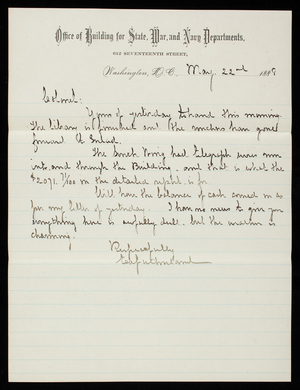 Office of Building for State, War, and Navy Departments,
612 SEVENTEENTH STREET,
Washington, D.C., May 22nd 1888
Colonel:
Yours of yesterday to hand this morning
The library is finished and the
The South Wing had telegraph wires run
into and through the Building, and that is what the
$2071. 7/100 on the detailed report is for
Will have the balance of cash
for my letter of yesterday. I have no news to give you
everything here is awfully dull, but the weather is
charming.
Respectfully